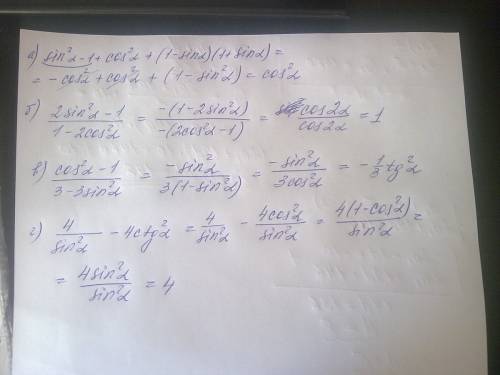 а) sin²α-1+cos²α+(1-sinα)(1+sinα)=
=-cos²α+cos²α+(1-sin²α)=cos²α
б) (2sin²α-1)/(1-2cos²α) = (-(1-2sin²α))/(-(2cos²α-1)) = cos2α/cos2α = 1
в) (cos²α-1)/(3-3sin²α) = (-sin²α)/(3(1-sin²α)) = (-sin²α)/(3cos²α) = -1/3 tg²α
г) 4/sin²α - 4ctg²α = 4/sin²α - 4cos²α/sin²α = 4(1-cos²α)/sin²α =
= 4sin²α/sin²α = 4